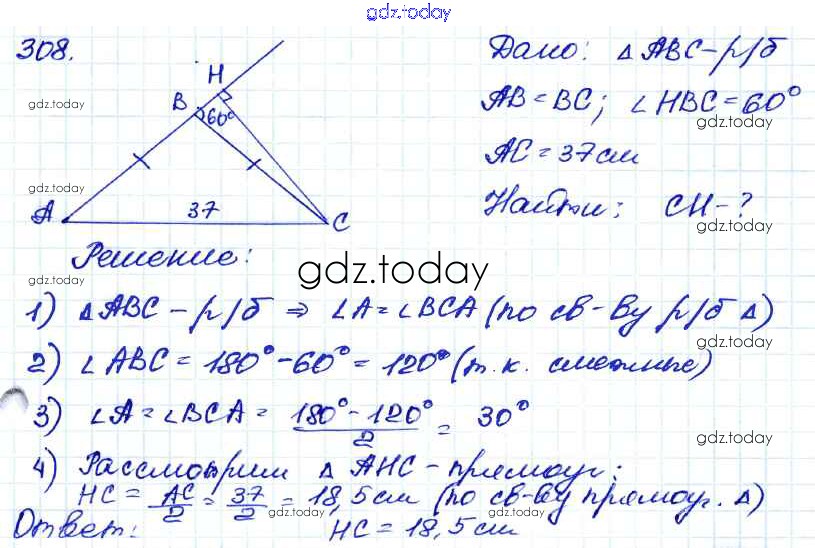 gdz.today
308.
H
B
60°
A
37
C
gdz.today
gdz.today
gdz.today
Дано: △ ABC – р/б
AB = BC; ∠ HBC = 60°
gdz.today
AC = 37 см
Найти: CH – ?
gdz.today
Решение:
gdz.today
1) △ ABC – р/б ⇒ ∠A = ∠BCA (по св-ву р/б △)
gdz.today
2) ∠ ABC = 180° – 60° = 120° (т. к. смежные)
3) ∠A = ∠BCA = (180° – 120°)/2 = 30°
gdz.today
4) Рассмотрим △ AHC – прямоуг.;
HC = AC/2 = 37/2 = 18,5 см (по св-ву прямоуг. △)
gdz.today
gdz.today
gdz.today
Ответ: HC = 18,5 см